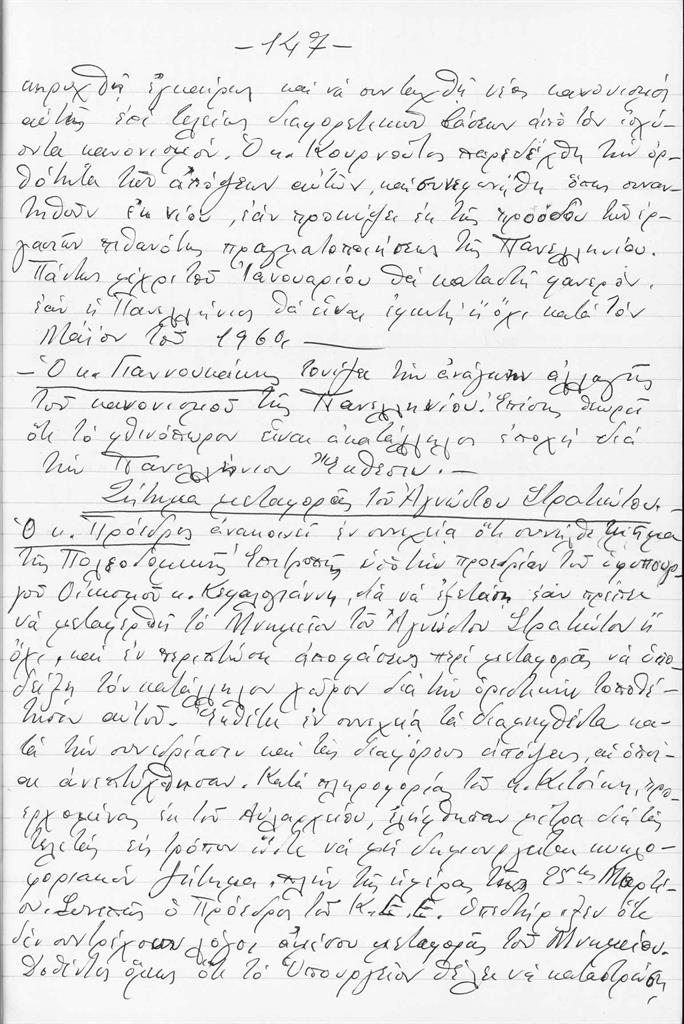 - 147 -
κηρυχθῇ ἐγκαίρως καὶ νὰ συνταχθῇ νέος κανονισμὸς
αὐτῆς ἐπὶ τελείως διαφορετικῶν βάσεων ἀπὸ τὸν ἰσχύ-
οντα κανονισμόν. Ὁ κ. Κουρνοῦτος παρεδέχθη τὴν ὀρ-
θότητα τῶν ἀπόψεων αὐτῶν, καὶ συνεφωνήθη ὅπως συναν-
τηθοῦν ἐκ νέου, ἐὰν προκύψει ἐκ τῆς προόδου τῶν ἐρ-
γασιῶν πιθανότης πραγματοποιήσεως τῆς Πανελληνίου.
Πάντως μέχρι τοῦ Ἰανουαρίου θὰ καταστῇ φανερόν,
ἐὰν ἡ Πανελλήνιος θὰ εἶναι ἐφικτὴ ἢ ὄχι κατὰ τὸν
Μάϊον τοῦ 1960.
- Ὁ κ. Γιαννουκάκης τονίζει τὴν ἀνάγκην ἀλλαγῆς
τοῦ κανονισμοῦ τῆς Πανελληνίου. Ἐπίσης θεωρεῖ
ὅτι τὸ φθινόπωρον εἶναι ἀκατάλληλος ἐποχὴ διὰ
τὴν Πανελλήνιον Ἔκθεσιν. -
Ζήτημα μεταφορᾶς τοῦ Ἀγνώστου Στρατιώτου.-
Ὁ κ. Πρόεδρος ἀνακοινεῖ ἐν συνεχείᾳ ὅτι συνῆλθε τμῆμα
τῆς Πολεοδομικῆς Ἐπιτροπῆς ὑπὸ τὴν προεδρίαν τοῦ ὑφυπουρ-
γοῦ Οἰκισμοῦ κ. Κεφαλογιάννη, διὰ νὰ ἐξετάσῃ ἐὰν πρέπει
νὰ μεταφερθῇ τὸ Μνημεῖον τοῦ Ἀγνώστου Στρατιώτου ἢ
ὄχι, καὶ ἐν περιπτώσει ἀποφάσεως περὶ μεταφορᾶς νὰ ὑπο-
δείξῃ τὸν κατάλληλον χῶρον διὰ τὴν ὁριστικὴν τοποθέ-
τησιν αὐτοῦ. Ἐκθέτει ἐν συνεχείᾳ τὰ διαμειφθέντα κα-
τὰ τὴν συνεδρίασιν καὶ τὰς διαφόρους ἀπόψεις, αἱ ὁποῖ-
αι ἀνεπτύχθησαν. Κατὰ πληροφορίας τοῦ κ. Κιτσίκη, προ-
ερχομένας ἐκ τοῦ Αὐλαρχείου, ἐλήφθησαν μέτρα διὰ τὰς
τελετὰς εἰς τρόπον ὥστε νὰ μὴ δημιουργεῖται κυκλο-
φοριακὸν ζήτημα, πλὴν τῆς ἡμέρας τῆς 25ης Μαρτί-
ου. Συνεπῶς ὁ Πρόεδρος τοῦ Κ.Ε.Ε. ὑπεστήριξεν ὅτι
δὲν συντρέχουν λόγοι ἀμέσου μεταφορᾶς τοῦ Μνημείου.
Δοθέντος ὅμως ὅτι τὸ Ὑπουργεῖον θέλει νὰ καταστρώσῃ